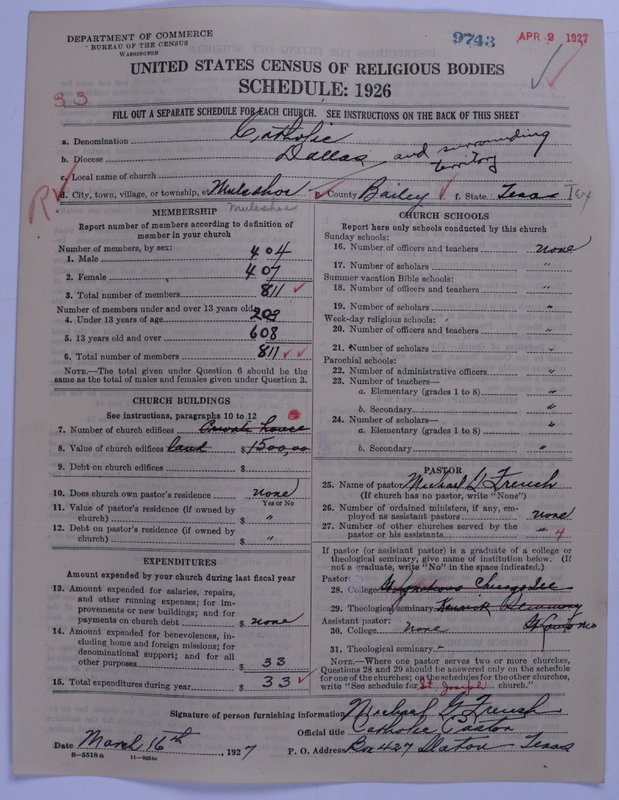 DEPARTMENT OF COMMERCE
BUREAU OF THE CENSUS
WASHINGTON
9743
APR 2 1927
UNITED STATES CENSUS OF RELIGIOUS BODIES
SCHEDULE: 1926
33
FILL OUT A SEPARATE SCHEDULE FOR EACH CHURCH. SEE INSTRUCTIONS ON THE BACK OF THIS SHEET
a. Denomination Catholic
b. Diocese Dallas and surrounding territory
c. Local name of church
d. City, town, village, or township, etc. Muleshoe County Bailey f. State Texas Tex
Muleshoe
MEMBERSHIP
Report number of members according to definition of
member in your church
Number of members, by sex:
1. Male 404
2. Female 407
3. Total number of members 811
Number of members under and over 13 years old:
4. Under 13 years of age 203
5. 13 years old and over 608
6. Total number of members 811
NOTE.—The total given under Question 6 should be the
same as the total of males and females given under Question 3.
CHURCH BUILDINGS
See instructions, paragraphs 10 to 12
7. Number of church edifices Private house
8. Value of church edifices land $1500,00
9. Debt on church edifices $
10. Does church own pastor's residence none
Yes or No
11. Value of pastor's residence (if owned by
church) $ "
12. Debt on pastor's residence (if owned by
church) $ "
EXPENDITURES
Amount expended by your church during last fiscal year
13. Amount expended for salaries, repairs,
and other running expenses; for im-
provements or new buildings; and for
payments on church debt $ none
14. Amount expended for benevolences, in-
cluding home and foreign missions; for
denominational support; and for all
other purposes $ 33
15. Total expenditures during year $ 33
CHURCH SCHOOLS
Report here only schools conducted by this church
Sunday schools:
16. Number of officers and teachers none
17. Number of scholars "
Summer vacation Bible schools:
18. Number of officers and teachers "
19. Number of scholars "
Week-day religious schools:
20. Number of officers and teachers "
21. Number of scholars "
Parochial schools:
22. Number of administrative officers "
23. Number of teachers—
a. Elementary (grades 1 to 8) "
b. Secondary "
24. Number of scholars—
a. Elementary (grades 1 to 8) "
b. Secondary "
PASTOR
25. Name of pastor Michael G French
(If church has no pastor, write "None")
26. Number of ordained ministers, if any, em-
ployed as assistant pastors none
27. Number of other churches served by the
pastor or his assistants " 4
If pastor (or assistant pastor) is a graduate of a college or
theological seminary, give name of institution below. (If
not a graduate, write "No" in the space indicated.)
Pastor:
28. College
29. Theological seminary Kenrick Seminary
Assistant pastor: St Louis Mo
30. College none
31. Theological seminary -
NOTE.—Where one pastor serves two or more churches,
Questions 28 and 29 should be answered only on the schedule
for one of the churches; on the schedules for the other churches,
write "See schedule for St. Joseph church."
Signature of person furnishing information Michael G French
Official title Catholic Pastor
Date March 16th, 1927 P. O. Address Box 427 Slaton Texas
8-5518a 11-9554